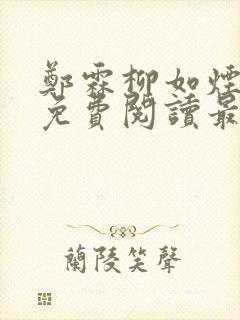 鄭霖柳如煙
免費閱讀最
蘭陵笑聲